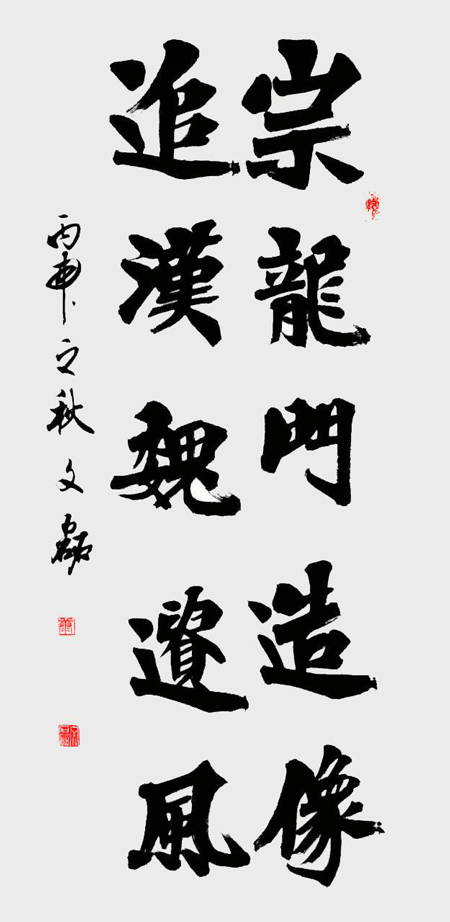 宗龍門造像
追漢魏遺風
丙申之秋文磊